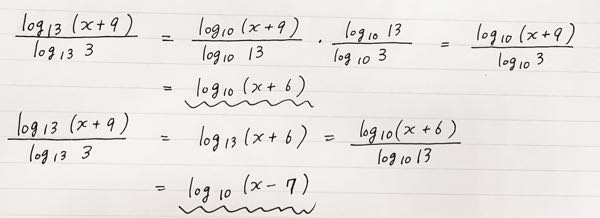 log₁₃ (x+9) / log₁₃ 3 = log₁₀ (x+9) / log₁₀ 13 · log₁₀ 13 / log₁₀ 3 = log₁₀ (x+9) / log₁₀ 3
= log₁₀ (x+6)
log₁₃ (x+9) / log₁₃ 3 = log₁₃ (x+6) = log₁₀ (x+6) / log₁₀ 13
= log₁₀ (x-7)